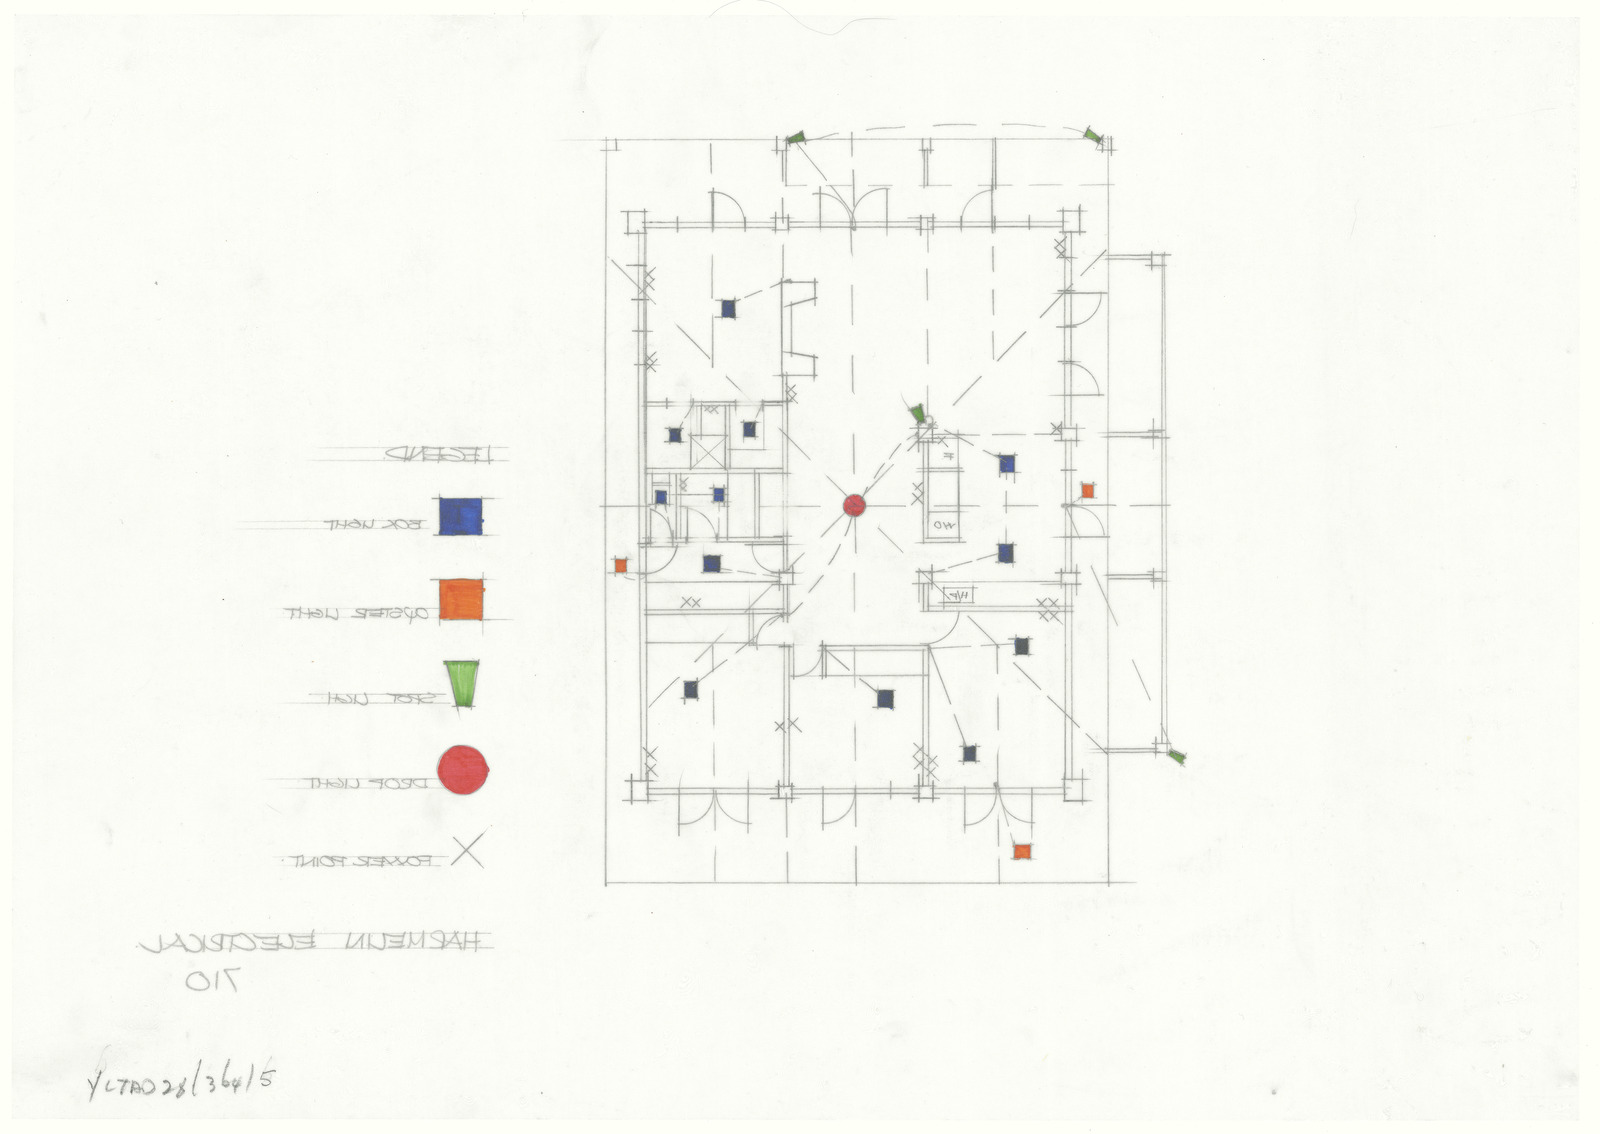 LEGEND
BOX LIGHT
OYSTER LIGHT
SPOT LIGHT
DROP LIGHT
POWER POINT
HARMELIN ELECTRICAL
017
YLTAD28/364/5
F
WO
H/P